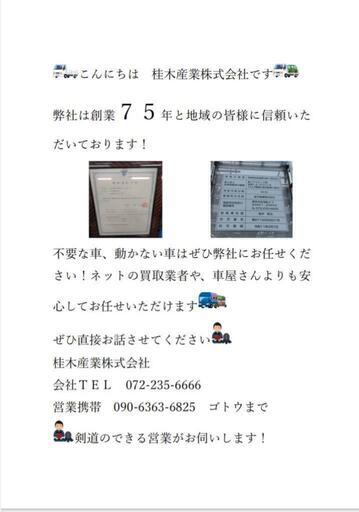 こんにちは　桂木産業株式会社です
弊社は創業７５年と地域の皆様に信頼いた
だいております！
不要な車、動かない車はぜひ弊社にお任せくだ
さい！ネットの買取業者や、車屋さんよりも安
心してお任せいただけます
ぜひ直接お話させてください
桂木産業株式会社
会社ＴＥＬ　072-235-6666
営業携帯　090-6363-6825　ゴトウまで
剣道のできる営業がお伺いします！